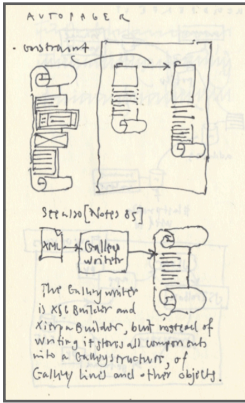 AUTOPAGER
• constraint
See also [Notes 85]
XML
Galley
writer
The Galley writer
is XSL Builder and
Builder, but instead of
writing it stores all components
into a Galley structure, of
Galley lines and other objects.